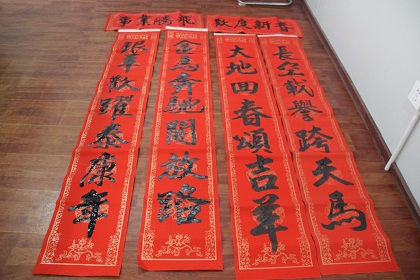 事業騰飛
歡度新春
長空載譽跨天馬
大地回春頌吉羊
金馬奔馳開放路
銀羊歡躍泰康年